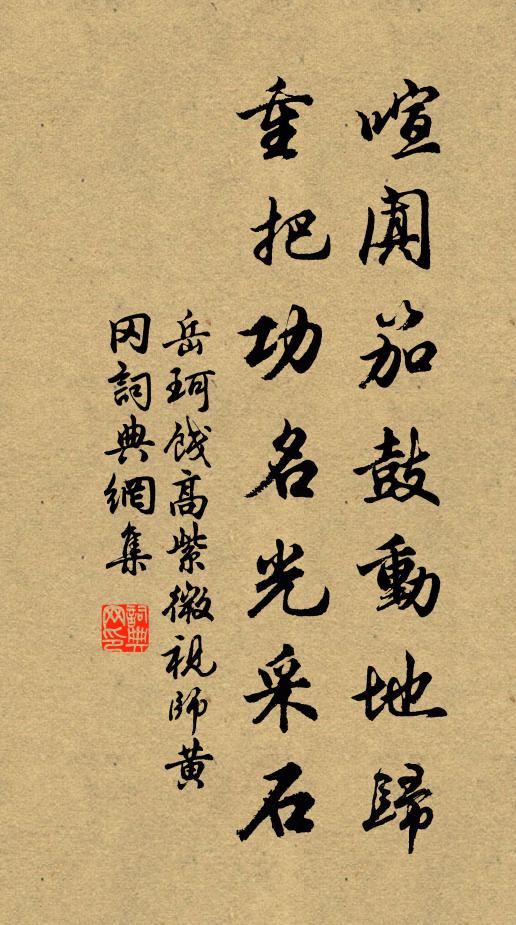 喧闐笳鼓動地歸
重把功名光采石
岳珂餞高紫微視師黃
岡詞典網集
詞典網印